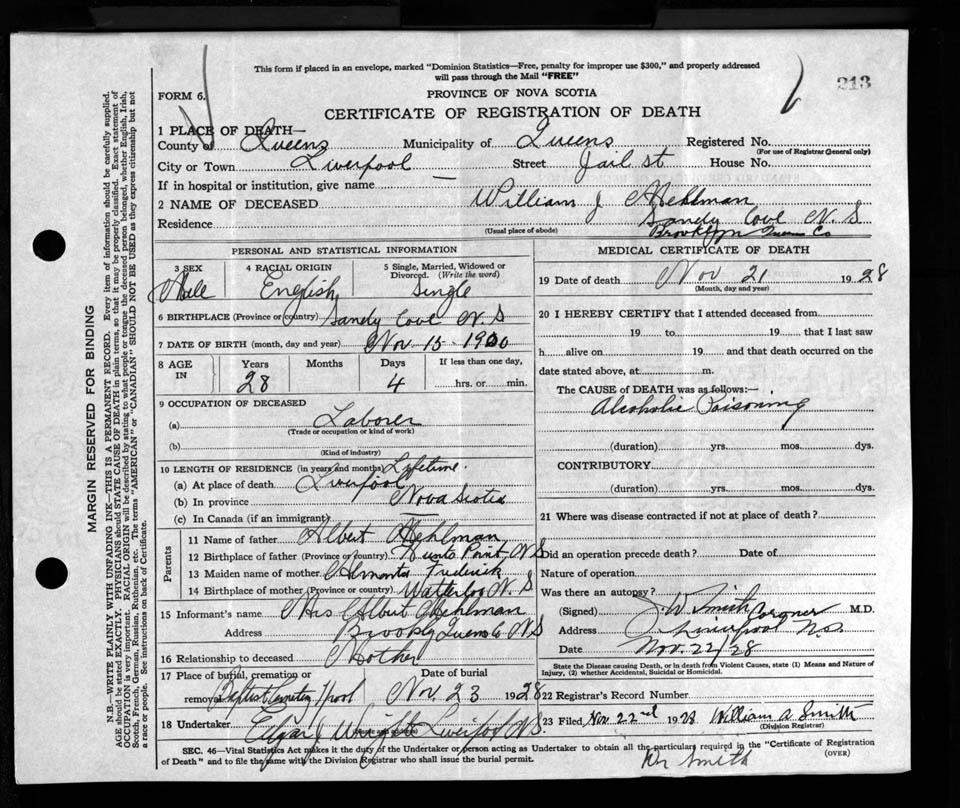 This form if placed in an envelope, marked "Dominion Statistics—Free, penalty for improper use $300," and properly addressed
will pass through the Mail "FREE"
213
FORM 6.
PROVINCE OF NOVA SCOTIA
CERTIFICATE OF REGISTRATION OF DEATH
1 PLACE OF DEATH—
County of Queens Municipality of Queens Registered No.
(For use of Registrar General only)
City or Town Liverpool Street Jail st House No.
If in hospital or institution, give name —
2 NAME OF DECEASED William J Mehlman
Residence Sandy Cove N S
(Usual place of abode) Brooklyn Queens Co
PERSONAL AND STATISTICAL INFORMATION
3 SEX Male
4 RACIAL ORIGIN English
5 Single, Married, Widowed or Divorced. (Write the word) Single
6 BIRTHPLACE (Province or country) Sandy Cove N. S
7 DATE OF BIRTH (month, day and year) Nov 15 - 1900
8 AGE IN Years 28 Months Days 4 If less than one day, ....hrs. or....min.
9 OCCUPATION OF DECEASED
(a) Laborer
(Trade or occupation or kind of work)
(b)
(Kind of industry)
10 LENGTH OF RESIDENCE (in years and months) Lifetime
(a) At place of death Liverpool
(b) In province Nova Scotia
(c) In Canada (if an immigrant) —
Parents
11 Name of father Albert Mehlman
12 Birthplace of father (Province or country) Hunts Point NS
13 Maiden name of mother Almonta Frederick
14 Birthplace of mother (Province or country) Watterloo N. S
15 Informant's name Mrs Albert Mehlman
Address Brookly Queens Co NS
16 Relationship to deceased Mother
17 Place of burial, cremation or removal Baptist Cemetery L'pool
Date of burial Nov 23 1928
18 Undertaker Edgar J Wright Liverpool NS.
MEDICAL CERTIFICATE OF DEATH
19 Date of death Nov 21 1928
(Month, day and year)
20 I HEREBY CERTIFY that I attended deceased from
19 to 19 that I last saw
h alive on 19 and that death occurred on the
date stated above, at m.
The CAUSE of DEATH was as follows:—
Alcoholic Poisoning
(duration) yrs. mos. dys.
CONTRIBUTORY
(duration) yrs. mos. dys.
21 Where was disease contracted if not at place of death?
Did an operation precede death? Date of
Nature of operation
Was there an autopsy?
(Signed) J W Smith Coroner M.D.
Address Liverpool N.S.
Date Nov. 22/28
State the Disease causing Death, or in death from Violent Causes, state (1) Means and Nature of
Injury, (2) whether Accidental, Suicidal or Homicidal.
22 Registrar's Record Number
23 Filed Nov 22nd 1928 William A Smith
(Division Registrar)
SEC. 46—Vital Statistics Act makes it the duty of the Undertaker or person acting as Undertaker to obtain all the particulars required in the "Certificate of Registration
of Death" and to file the same with the Division Registrar who shall issue the burial permit.
(OVER)
Dr Smith
MARGIN RESERVED FOR BINDING
N.B.—WRITE PLAINLY WITH UNFADING INK—THIS IS A PERMANENT RECORD. Every item of information should be carefully supplied.
AGE should be stated EXACTLY. PHYSICIANS should STATE CAUSE OF DEATH in plain terms, so that it may be properly classified. Exact statement of
OCCUPATION is very important. RACIAL ORIGIN will be described by stating to what people or tongue the deceased person belonged, whether English, Irish,
Scotch, French, German, Russian, Ruthenian, etc. The terms "AMERICAN" or "CANADIAN" SHOULD NOT BE USED as they express citizenship but not
a race or people. See instructions on back of Certificate.